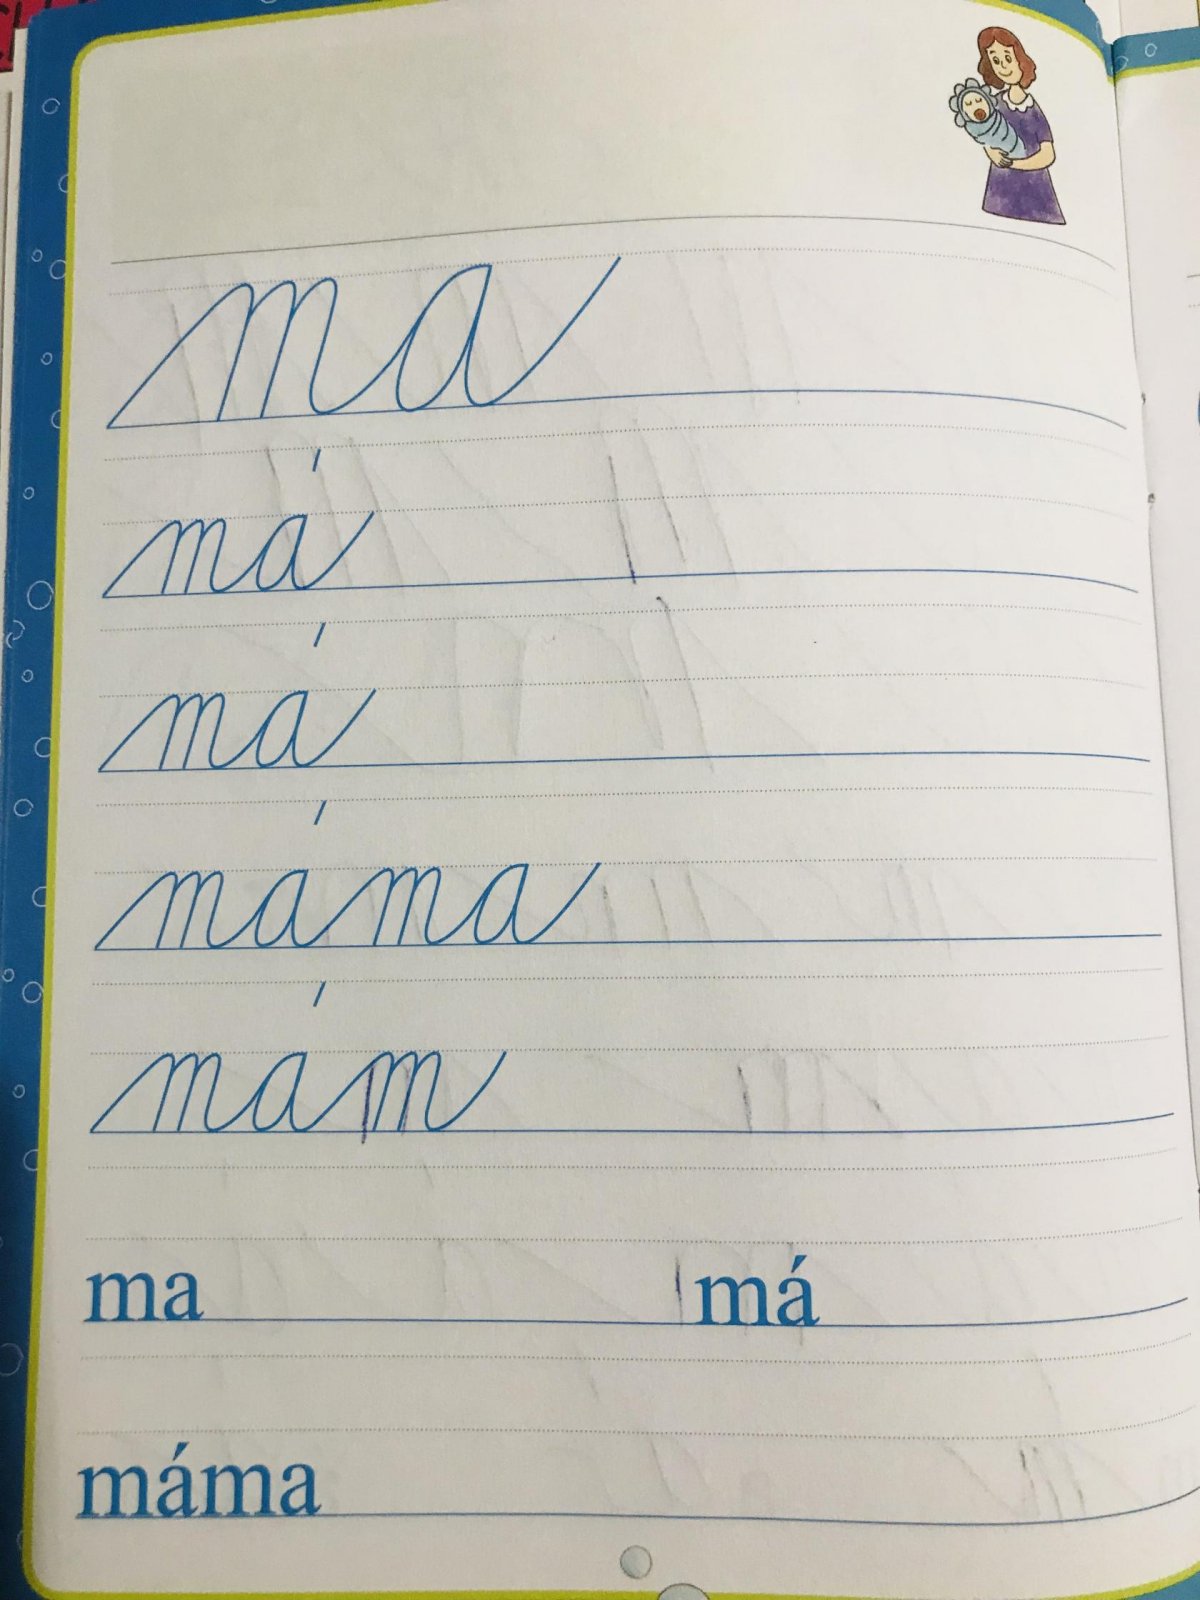 ma
má
má
máma
mám
ma má
máma